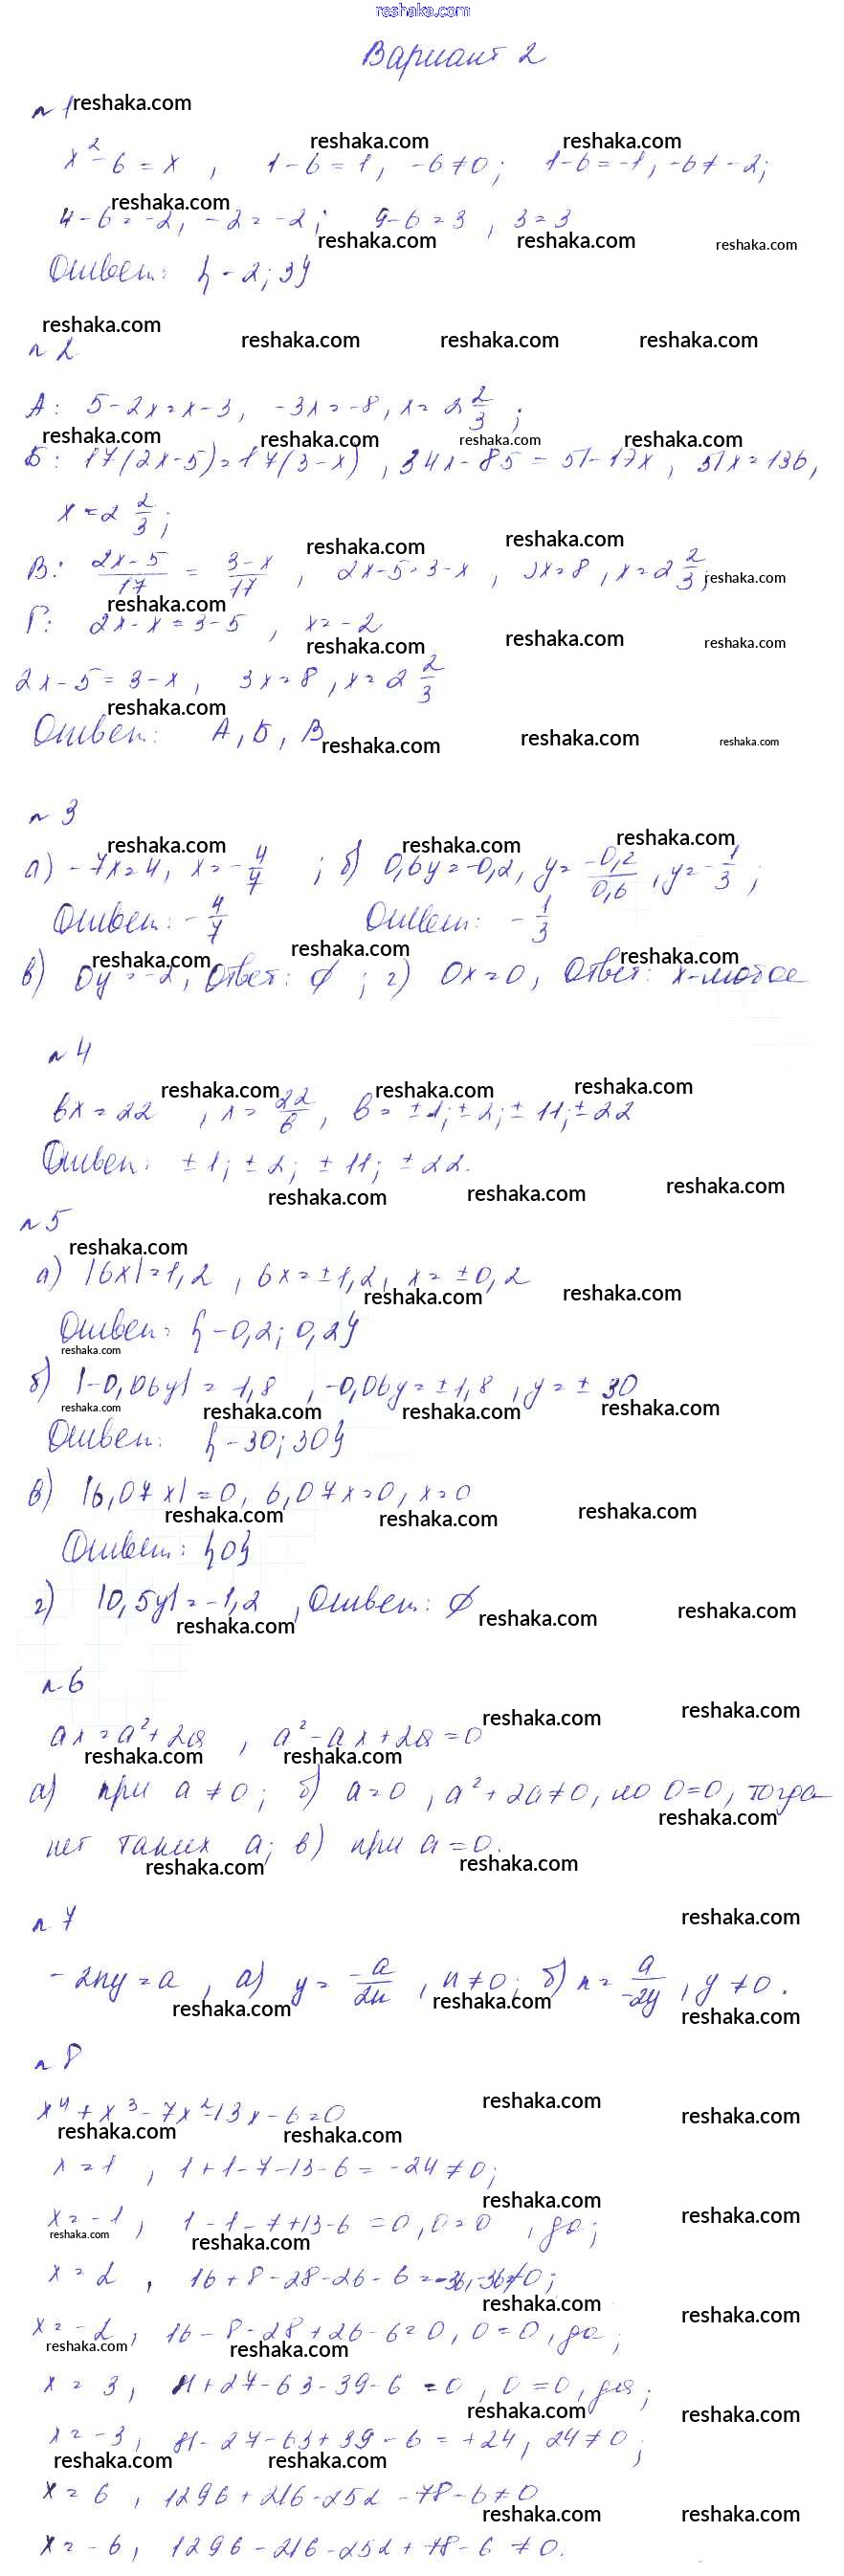 reshaka.com
Вариант 2
n 1 reshaka.com
reshaka.com reshaka.com
x² - 6 = x , 1 - 6 = 1, -6 ≠ 0; 1 - 6 = -1, -6 ≠ -2;
reshaka.com
4 - 6 = -2, -2 = -2; 9 - 6 = 3 , 3 = 3
reshaka.com reshaka.com reshaka.com
Ответ: {-2; 3}
reshaka.com reshaka.com reshaka.com reshaka.com
n 2
А: 5 - 2x = x - 3, -3x = -8, x = 2 2/3 ;
reshaka.com reshaka.com reshaka.com reshaka.com
Б: 17(2x-5) = 17(3-x) , 34x - 85 = 51 - 17x , 51x = 136,
x = 2 2/3 ;
reshaka.com reshaka.com
В: (2x-5)/17 = (3-x)/17 , 2x-5 = 3-x , 3x = 8 , x = 2 2/3; reshaka.com
reshaka.com
Г: 2x - x = 3 - 5 , x = -2
reshaka.com reshaka.com reshaka.com
2x - 5 = 3 - x , 3x = 8 , x = 2 2/3
reshaka.com
Ответ: А, Б, В
reshaka.com reshaka.com reshaka.com
n 3
reshaka.com reshaka.com reshaka.com
а) -7x = 4, x = - 4/7 ; б) 0,6y = -0,2, y = -0,2/0,6 , y = - 1/3 ;
Ответ: - 4/7 Ответ: - 1/3
reshaka.com reshaka.com reshaka.com
в) 0y = -2, Ответ: ∅ ; г) 0x = 0, Ответ: x-любое
n 4
reshaka.com reshaka.com reshaka.com
bx = 22 , x = 22/b , b = ±1; ±2; ±11; ±22
Ответ: ±1; ±2; ±11; ±22.
reshaka.com reshaka.com reshaka.com
n 5
reshaka.com
а) |6x| = 1,2 , 6x = ±1,2, x = ±0,2
reshaka.com reshaka.com
Ответ: {-0,2; 0,2}
reshaka.com
б) |-0,06y| = 1,8 , -0,06y = ±1,8 , y = ±30
reshaka.com reshaka.com reshaka.com reshaka.com
Ответ: {-30; 30}
в) |6,07x| = 0, 6,07x = 0, x = 0
reshaka.com reshaka.com reshaka.com
Ответ: {0}
г) |0,5y| = -1,2 , Ответ: ∅
reshaka.com reshaka.com reshaka.com
n 6
reshaka.com reshaka.com
ax = a² + 2a , a² - ax + 2a = 0
reshaka.com reshaka.com
а) при a ≠ 0; б) a = 0 , a² + 2a ≠ 0, но 0 = 0, тогда
reshaka.com
нет таких a; в) при a = 0.
reshaka.com reshaka.com
n 7 reshaka.com
-2ny = a , а) y = -a/2n , n ≠ 0; б) n = a/-2y , y ≠ 0.
reshaka.com reshaka.com reshaka.com
n 8
x⁴ + x³ - 7x² - 13x - 6 = 0 reshaka.com reshaka.com
reshaka.com reshaka.com
x = 1 , 1 + 1 - 7 - 13 - 6 = -24 ≠ 0;
reshaka.com reshaka.com
x = -1 , 1 - 1 - 7 + 13 - 6 = 0, 0 = 0 , да;
reshaka.com reshaka.com
x = 2 , 16 + 8 - 28 - 26 - 6 = -36, -36 ≠ 0;
reshaka.com reshaka.com
x = -2, 16 - 8 - 28 + 26 - 6 = 0, 0 = 0, да;
reshaka.com reshaka.com
x = 3, 81 + 27 - 63 - 39 - 6 = 0 , 0 = 0, да;
reshaka.com reshaka.com
x = -3, 81 - 27 - 63 + 39 - 6 = +24, 24 ≠ 0;
reshaka.com reshaka.com
x = 6 , 1296 + 216 - 252 - 78 - 6 ≠ 0
reshaka.com reshaka.com
x = -6, 1296 - 216 - 252 + 78 - 6 ≠ 0.